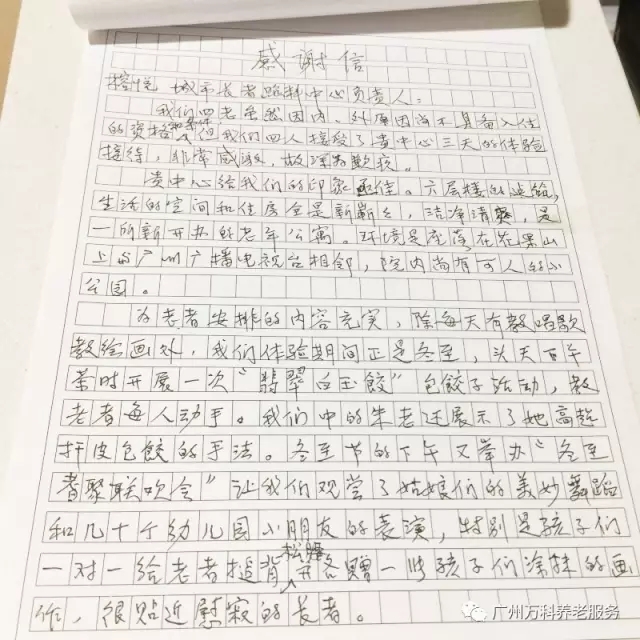 感谢信
榕悦 城市长者照料中心负责人:
我们四老虽然因内、外原因尚不具备入住
的资格和条件,但我们四人接受了贵中心三天的体验
接待,非常感激,故深为歉疚。
贵中心给我们的印象極佳。六层楼的
生活的空间和住房全是新崭崭,洁净清爽,是
一所新开办的老年公寓。环境是座落在花果山
上与广州广播电视台相邻,院内尚有可人的小
公园。
为老者安排的内容充实,除每天有教唱歌
教绘画外,我们体验期间正是冬至,头天下午
茶时开展一次“翡翠白玉餃”包餃子活动,教
老者每人动手。我们中的朱老还展示了她高超
扞皮包餃的手法。冬至节的下午又举办“冬至
耆聚联欢会”让我们观赏了姑娘们的美妙舞蹈
和几十个幼儿园小朋友的表演,特别是孩子们
一对一给老者捶背松腰并各赠一些孩子们涂抹的画
作,很贴近慰寂的长者。
广州万科养老服务